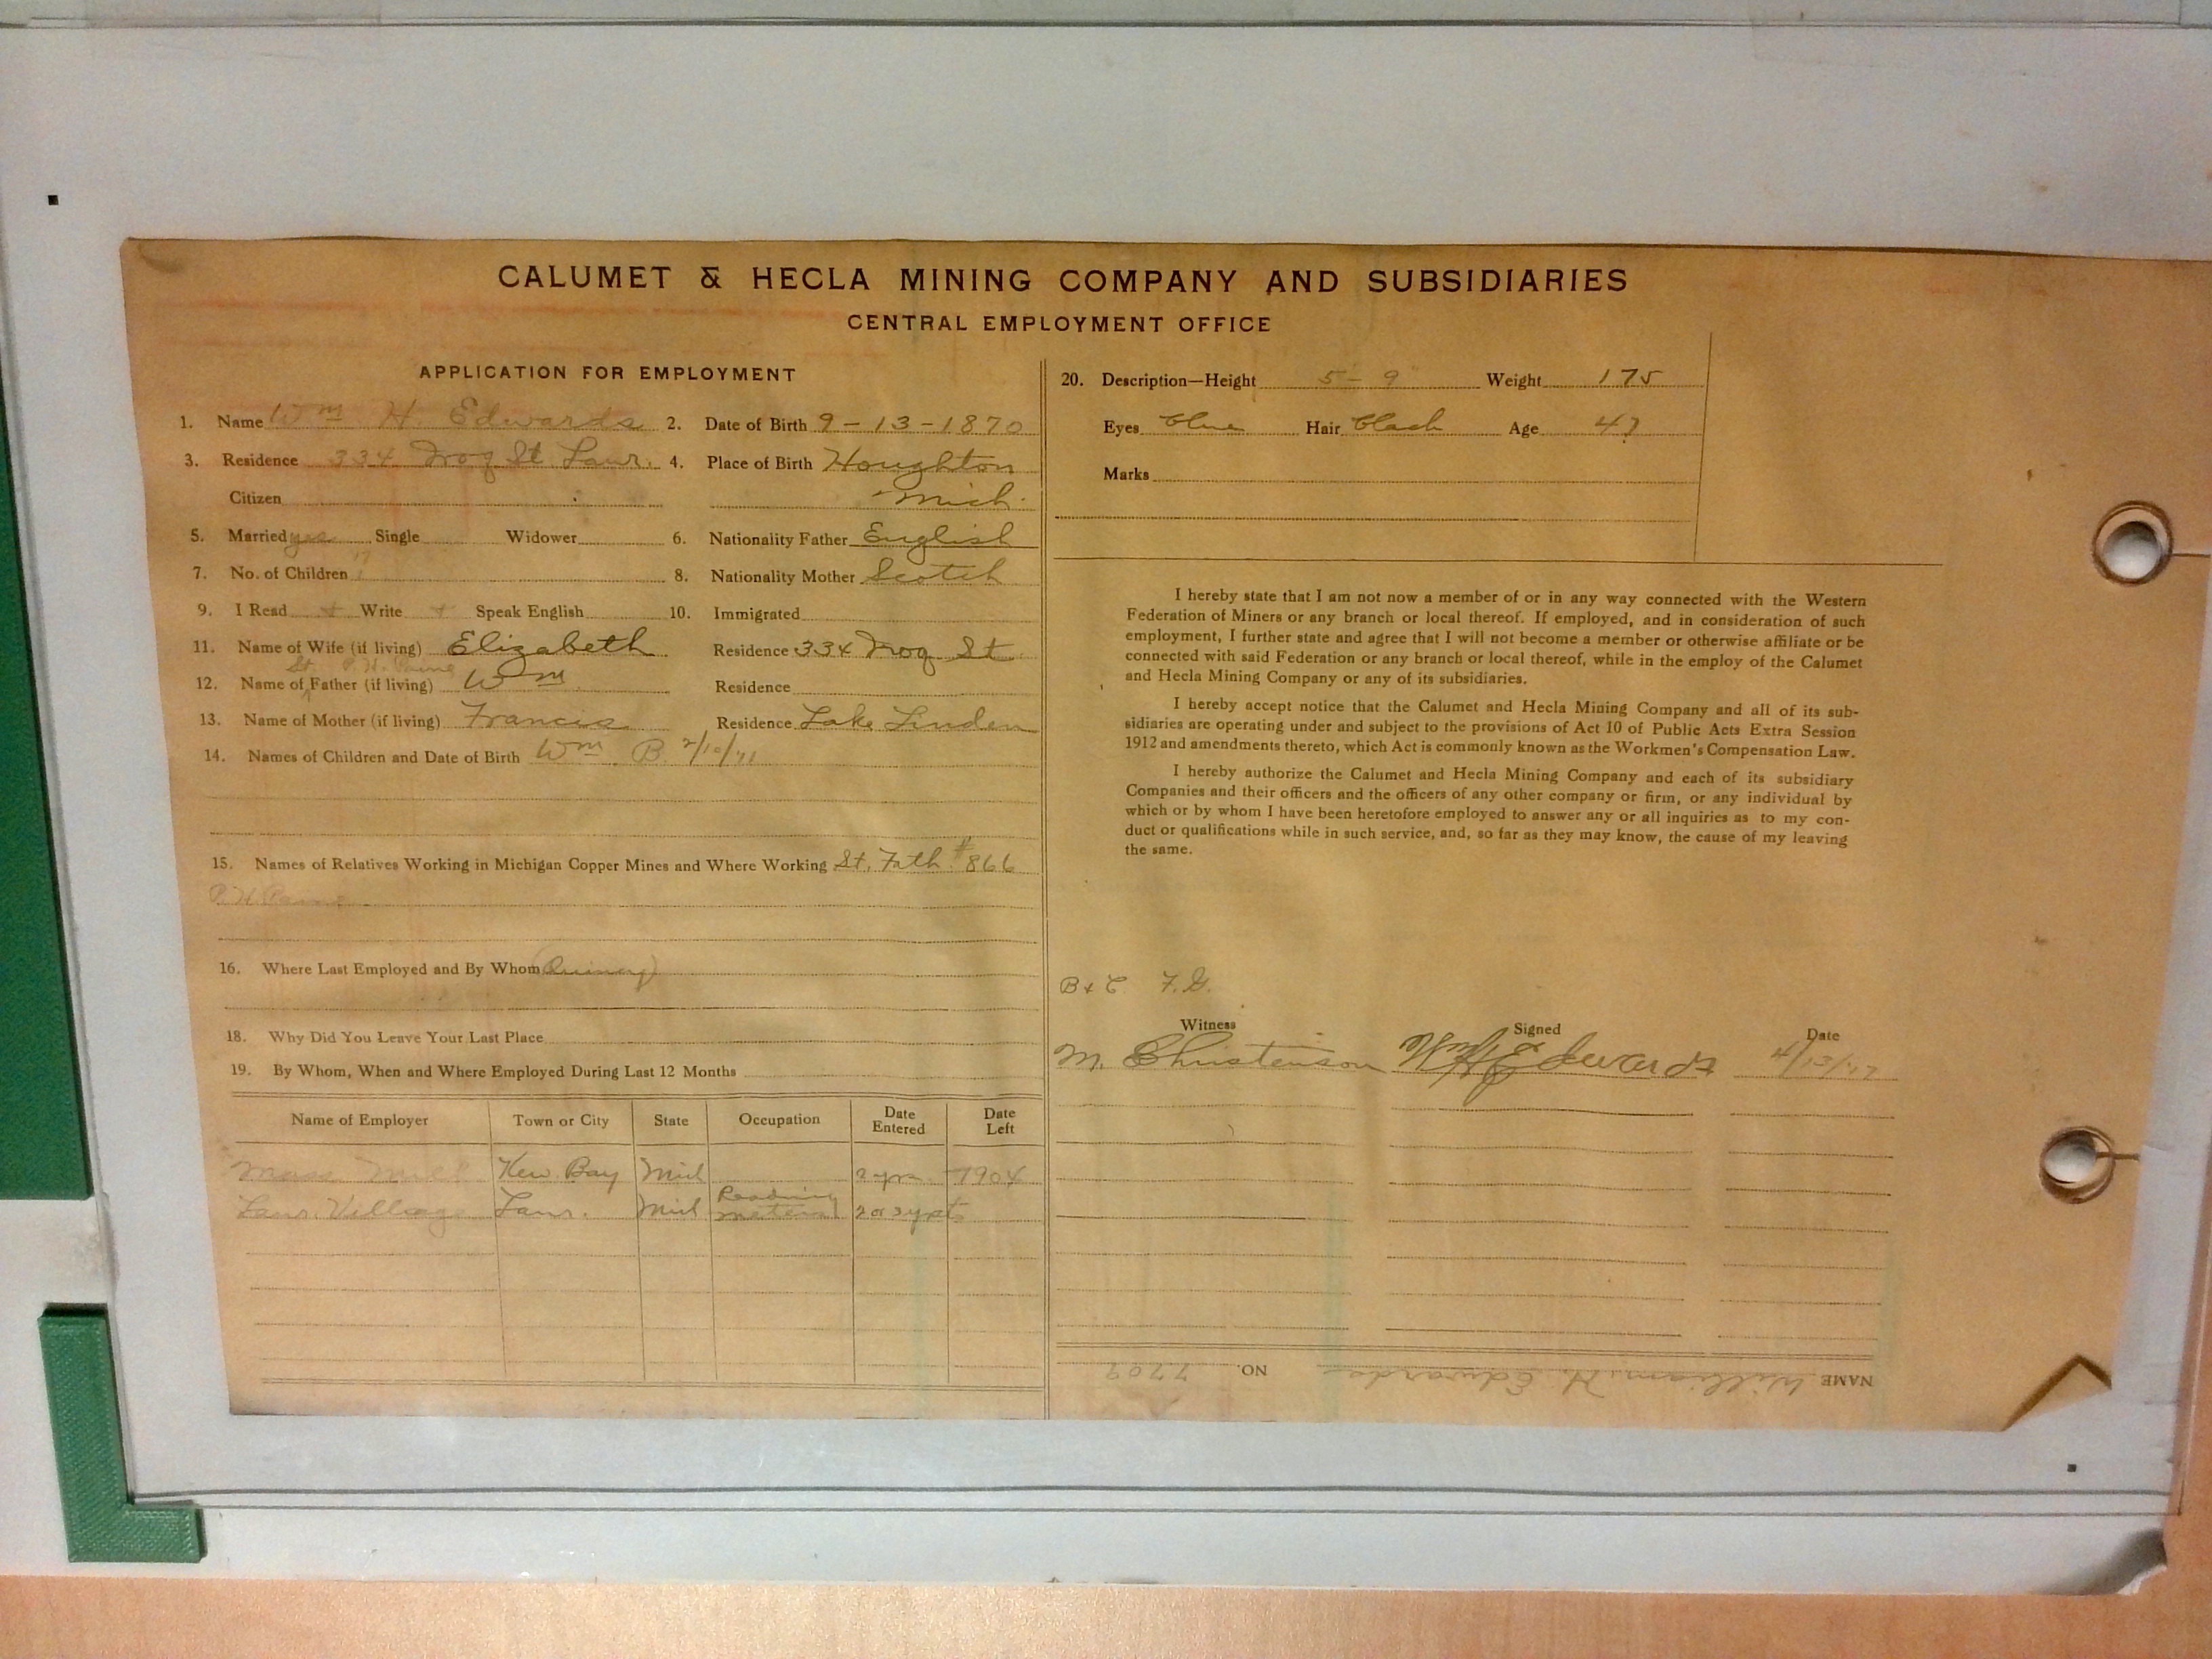 CALUMET & HECLA MINING COMPANY AND SUBSIDIARIES
CENTRAL EMPLOYMENT OFFICE
APPLICATION FOR EMPLOYMENT
1. Name Wm H. Edwards 2. Date of Birth 9-13-1870
3. Residence 334 St Laur. 4. Place of Birth Houghton
Citizen Mich.
5. Married yes Single Widower 6. Nationality Father English
7. No. of Children 8. Nationality Mother Scotch
9. I Read + Write + Speak English 10. Immigrated
11. Name of Wife (if living) Elizabeth Residence 334 St
St. P. H. Paine
12. Name of Father (if living) Wm Residence
13. Name of Mother (if living) Francis Residence Lake Linden
14. Names of Children and Date of Birth Wm. B.
15. Names of Relatives Working in Michigan Copper Mines and Where Working St. Fath #866
P. H. Paine
16. Where Last Employed and By Whom (Quincy)
18. Why Did You Leave Your Last Place
19. By Whom, When and Where Employed During Last 12 Months
Name of Employer Town or City State Occupation Date Entered Date Left
Mass Mill Kew. Bay Mich 2 yrs. 1904
Laur. Village Laur. Mich material 2 or 3
20. Description—Height 5-9" Weight 175
Eyes blue Hair black Age 47
Marks
I hereby state that I am not now a member of or in any way connected with the Western
Federation of Miners or any branch or local thereof. If employed, and in consideration of such
employment, I further state and agree that I will not become a member or otherwise affiliate or be
connected with said Federation or any branch or local thereof, while in the employ of the Calumet
and Hecla Mining Company or any of its subsidiaries.
I hereby accept notice that the Calumet and Hecla Mining Company and all of its sub-
sidiaries are operating under and subject to the provisions of Act 10 of Public Acts Extra Session
1912 and amendments thereto, which Act is commonly known as the Workmen's Compensation Law.
I hereby authorize the Calumet and Hecla Mining Company and each of its subsidiary
Companies and their officers and the officers of any other company or firm, or any individual by
which or by whom I have been heretofore employed to answer any or all inquiries as to my con-
duct or qualifications while in such service, and, so far as they may know, the cause of my leaving
the same.
B & C F.G.
Witness Signed Date
M. Christenson Wm H Edwards 4/13/17
NAME William H. Edwards NO. 7709